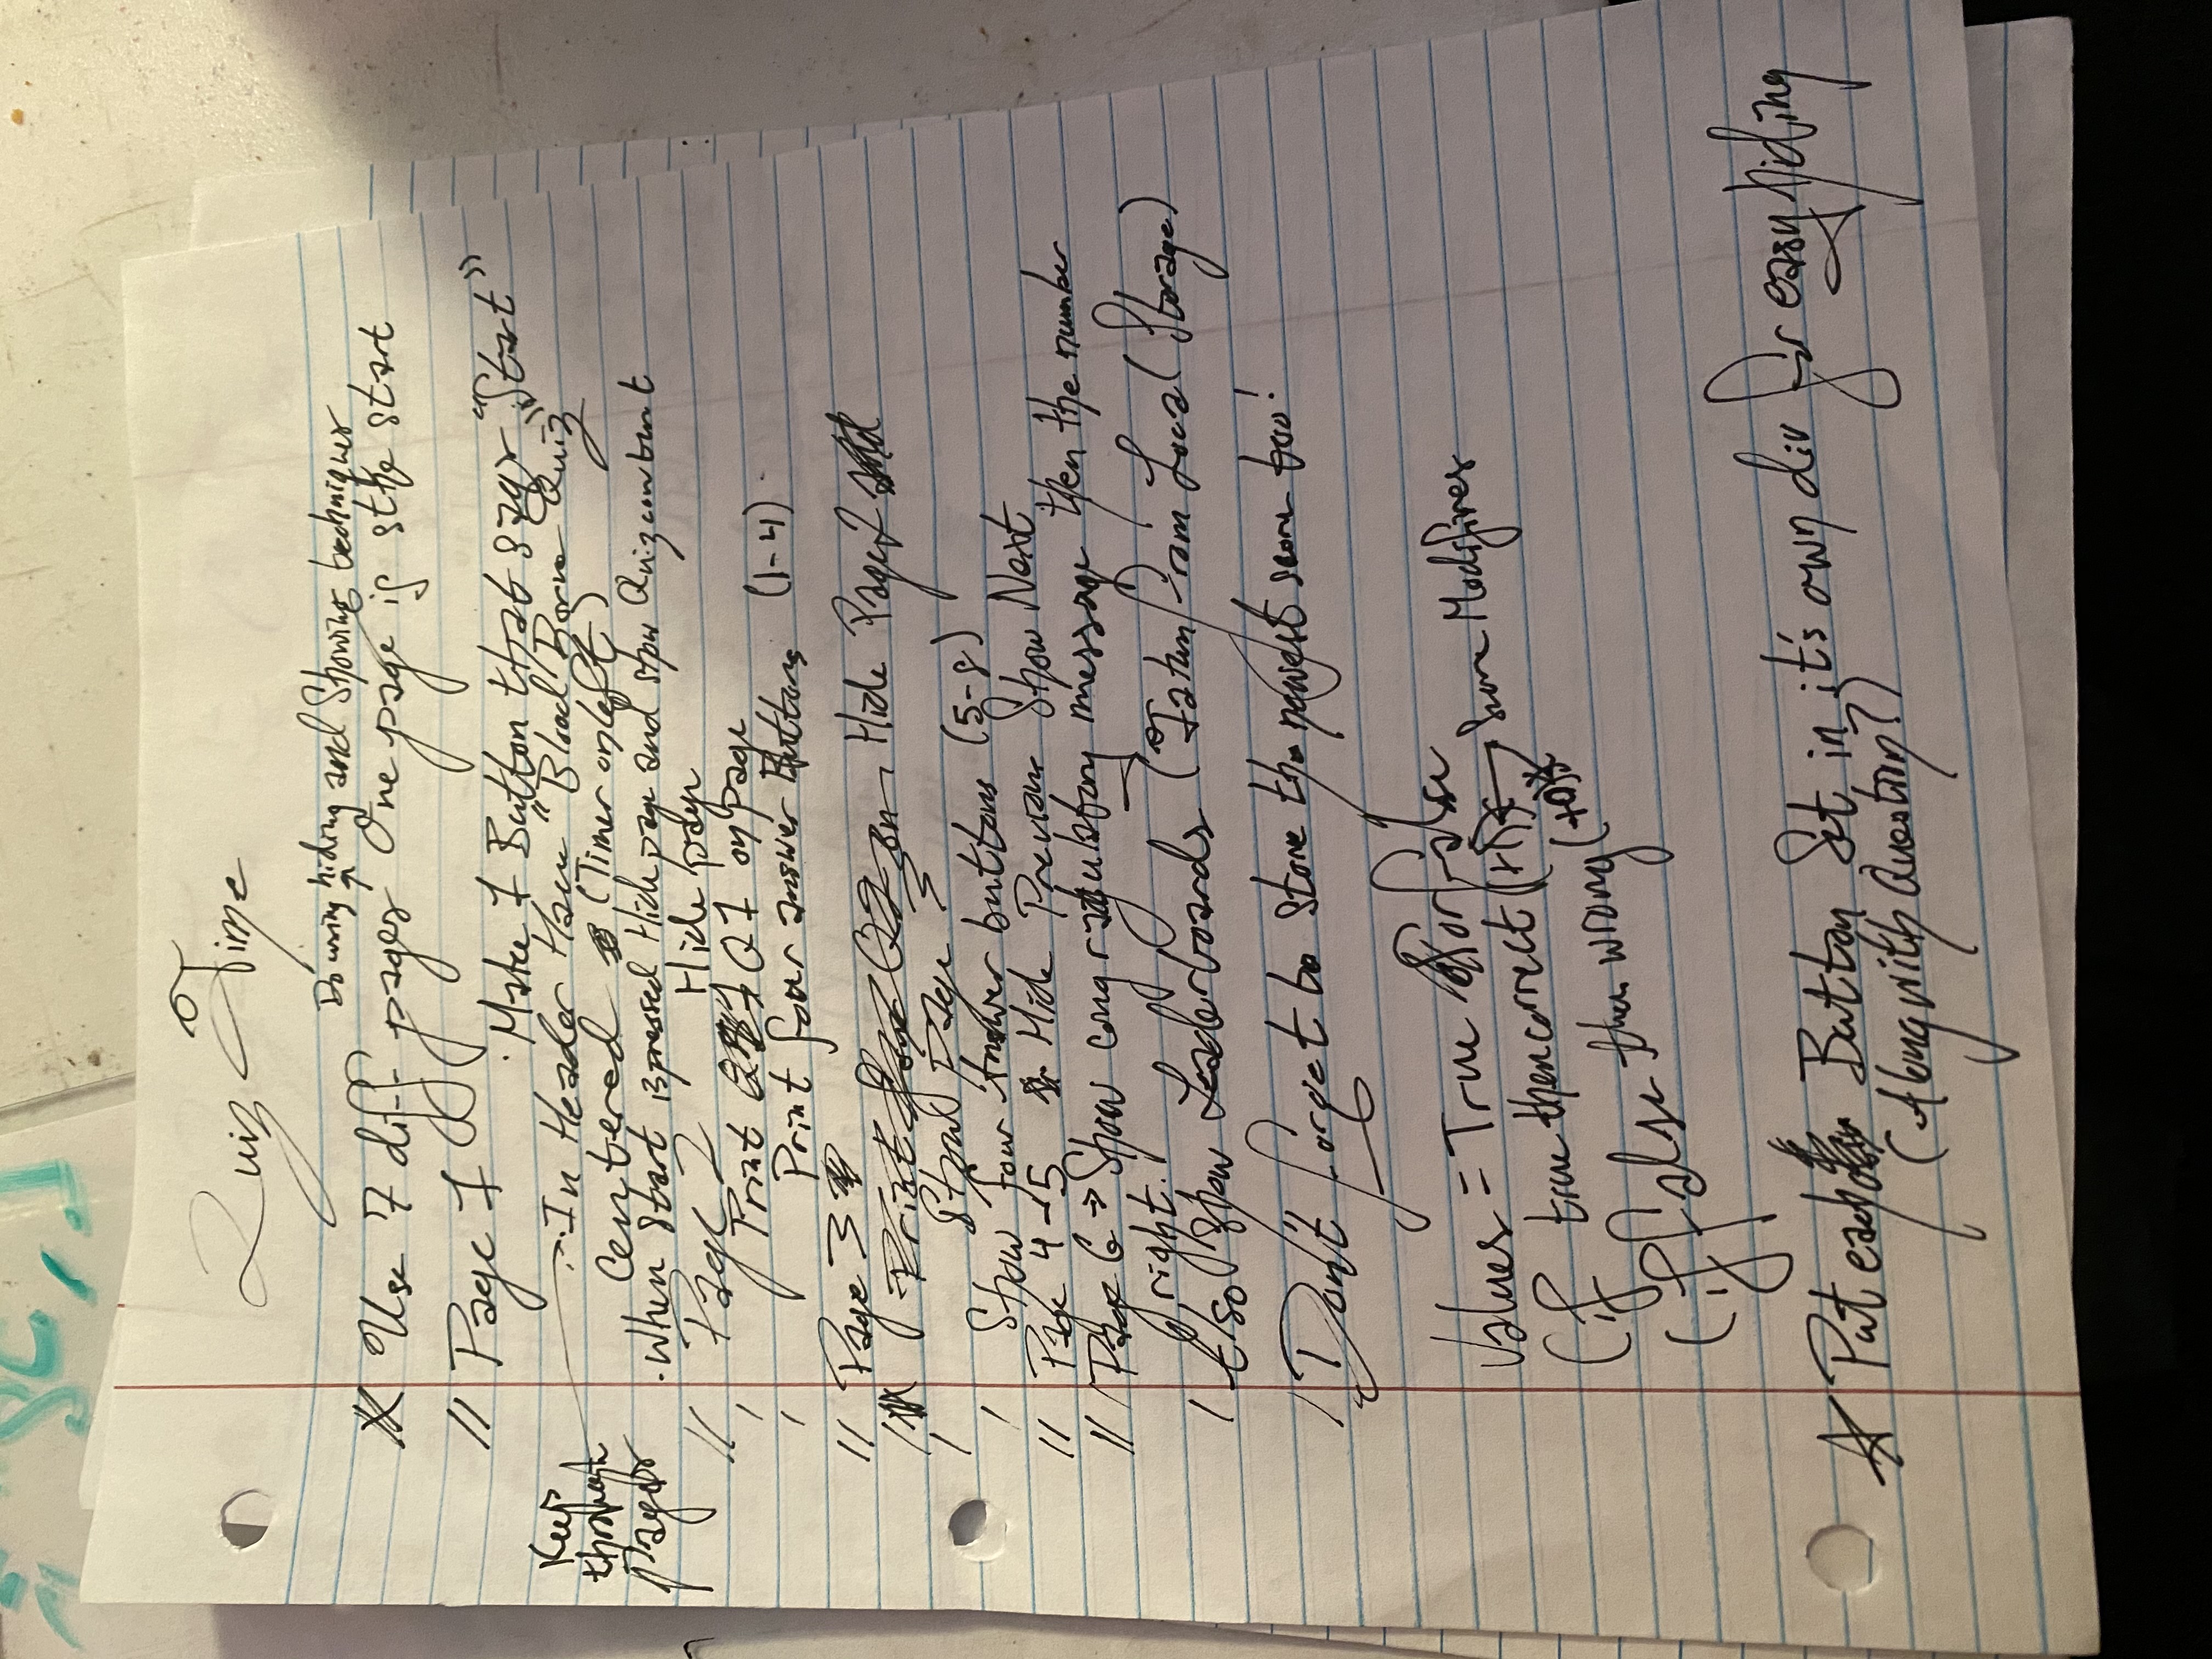 Quiz Time
Do using hiding and Showing techniques
Use 7 diff pages ↑ One page is the start
// Page 1
· Make 1 Button that says "Start"
Keep through Pages
· In Header Have "Blood Borne Quiz"
centered (Timer on left)
· When Start is pressed Hide page and show Quiz content
// Page 2 Hide page
/ Print Q1 on page
/ Print four answer Buttons (1-4)
// Page 3
/ Hide Page 2
/ Show page 3
/ Show four Answer buttons (5-8)
// Page 4-5 Hide Previous Show Next
// Page 6 → Show congratulatory message then the number
right.
/ Also Show Leaderboards (from Local Storage)
/ Don't forget to store the newest score too!
Values = True or false
(if true then correct (+1) ← Score Modifires
(if false then wrong (+0)
☆ Put each Button Set in it's own div for easy hiding
(Along with Question?)